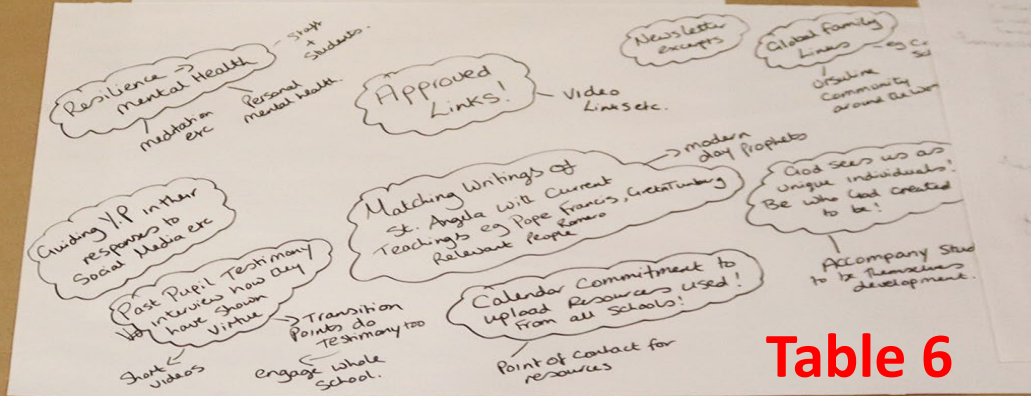 Resilience →
mental Health
staff
+
students.
meditation
etc
Personal
mental health.
Approved
Links!
Video
Links etc.
Newsletter
excerpts
Global Family
Links
eg
Ursuline
Community
around the
Guiding Y.P in their
responses to
Social Media etc
Matching Writings of
St. Angela with Current
Teachings eg Pope Francis, Greta Tunburg
Romero
Relevant People
modern
day Prophets
God sees us as
unique individuals!
Be who God created
to be!
Accompany
to be themselves
development.
Past Pupil Testimony
interview how they
have shown
Virtue
Short
Videos
Transition
Points do
Testimony too
engage whole
School.
Calendar Commitment to
upload Resources used!
From all Schools!
Point of contact for
resources
Table 6